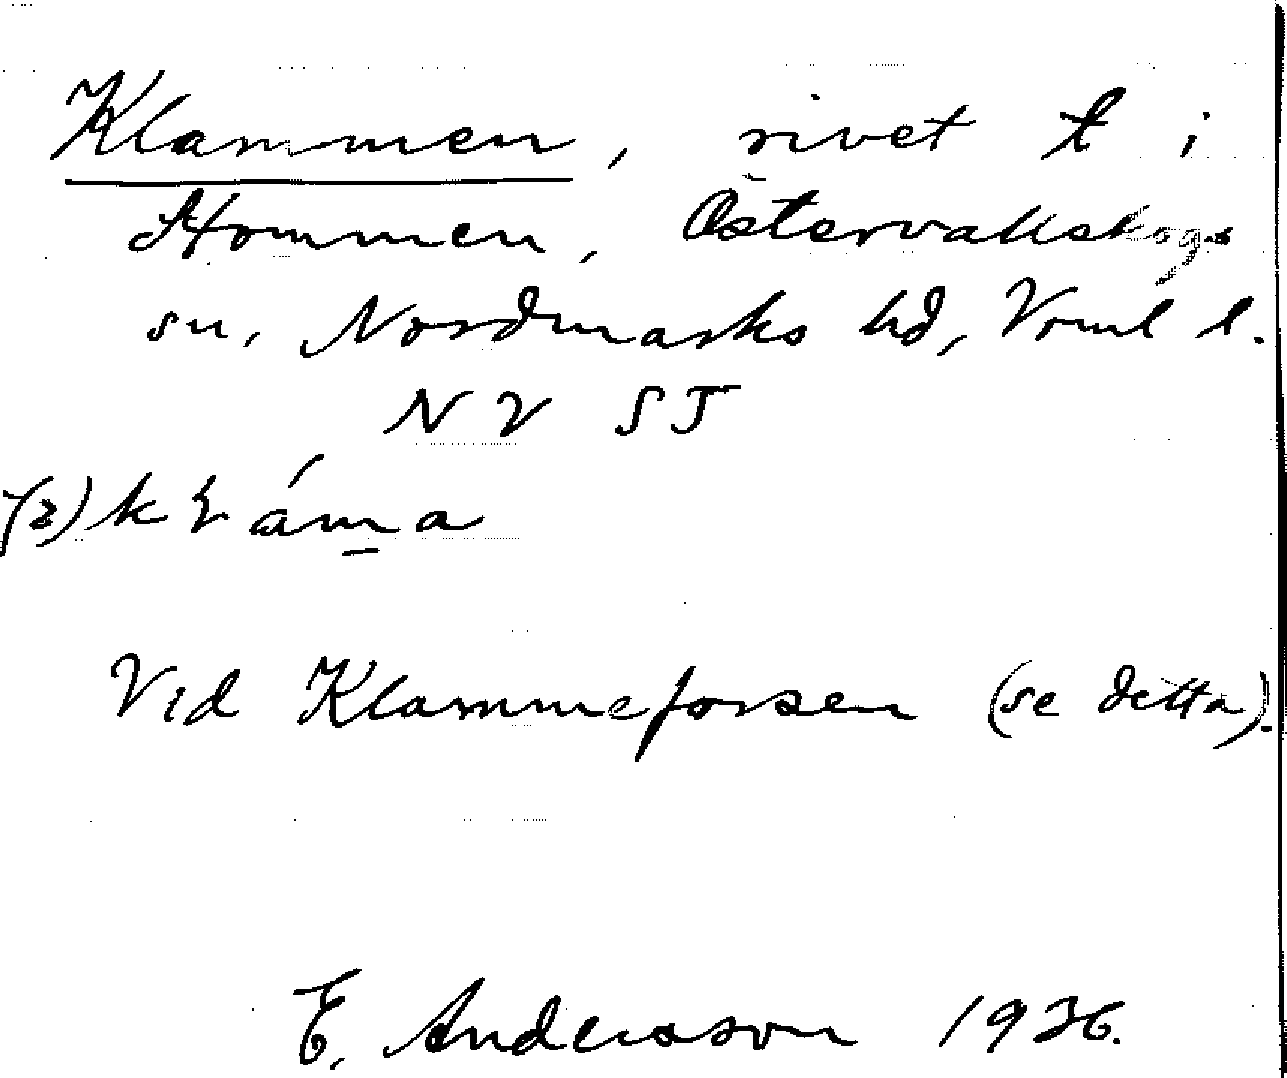 Klammen, rivet t i
Stommen, Östervallskogs
sn, Nordmarks hd, Vrml l.
N V ST
(2) k ɬ áma
Vid Klammeforsen (se detta).
E. Andersson 1936.